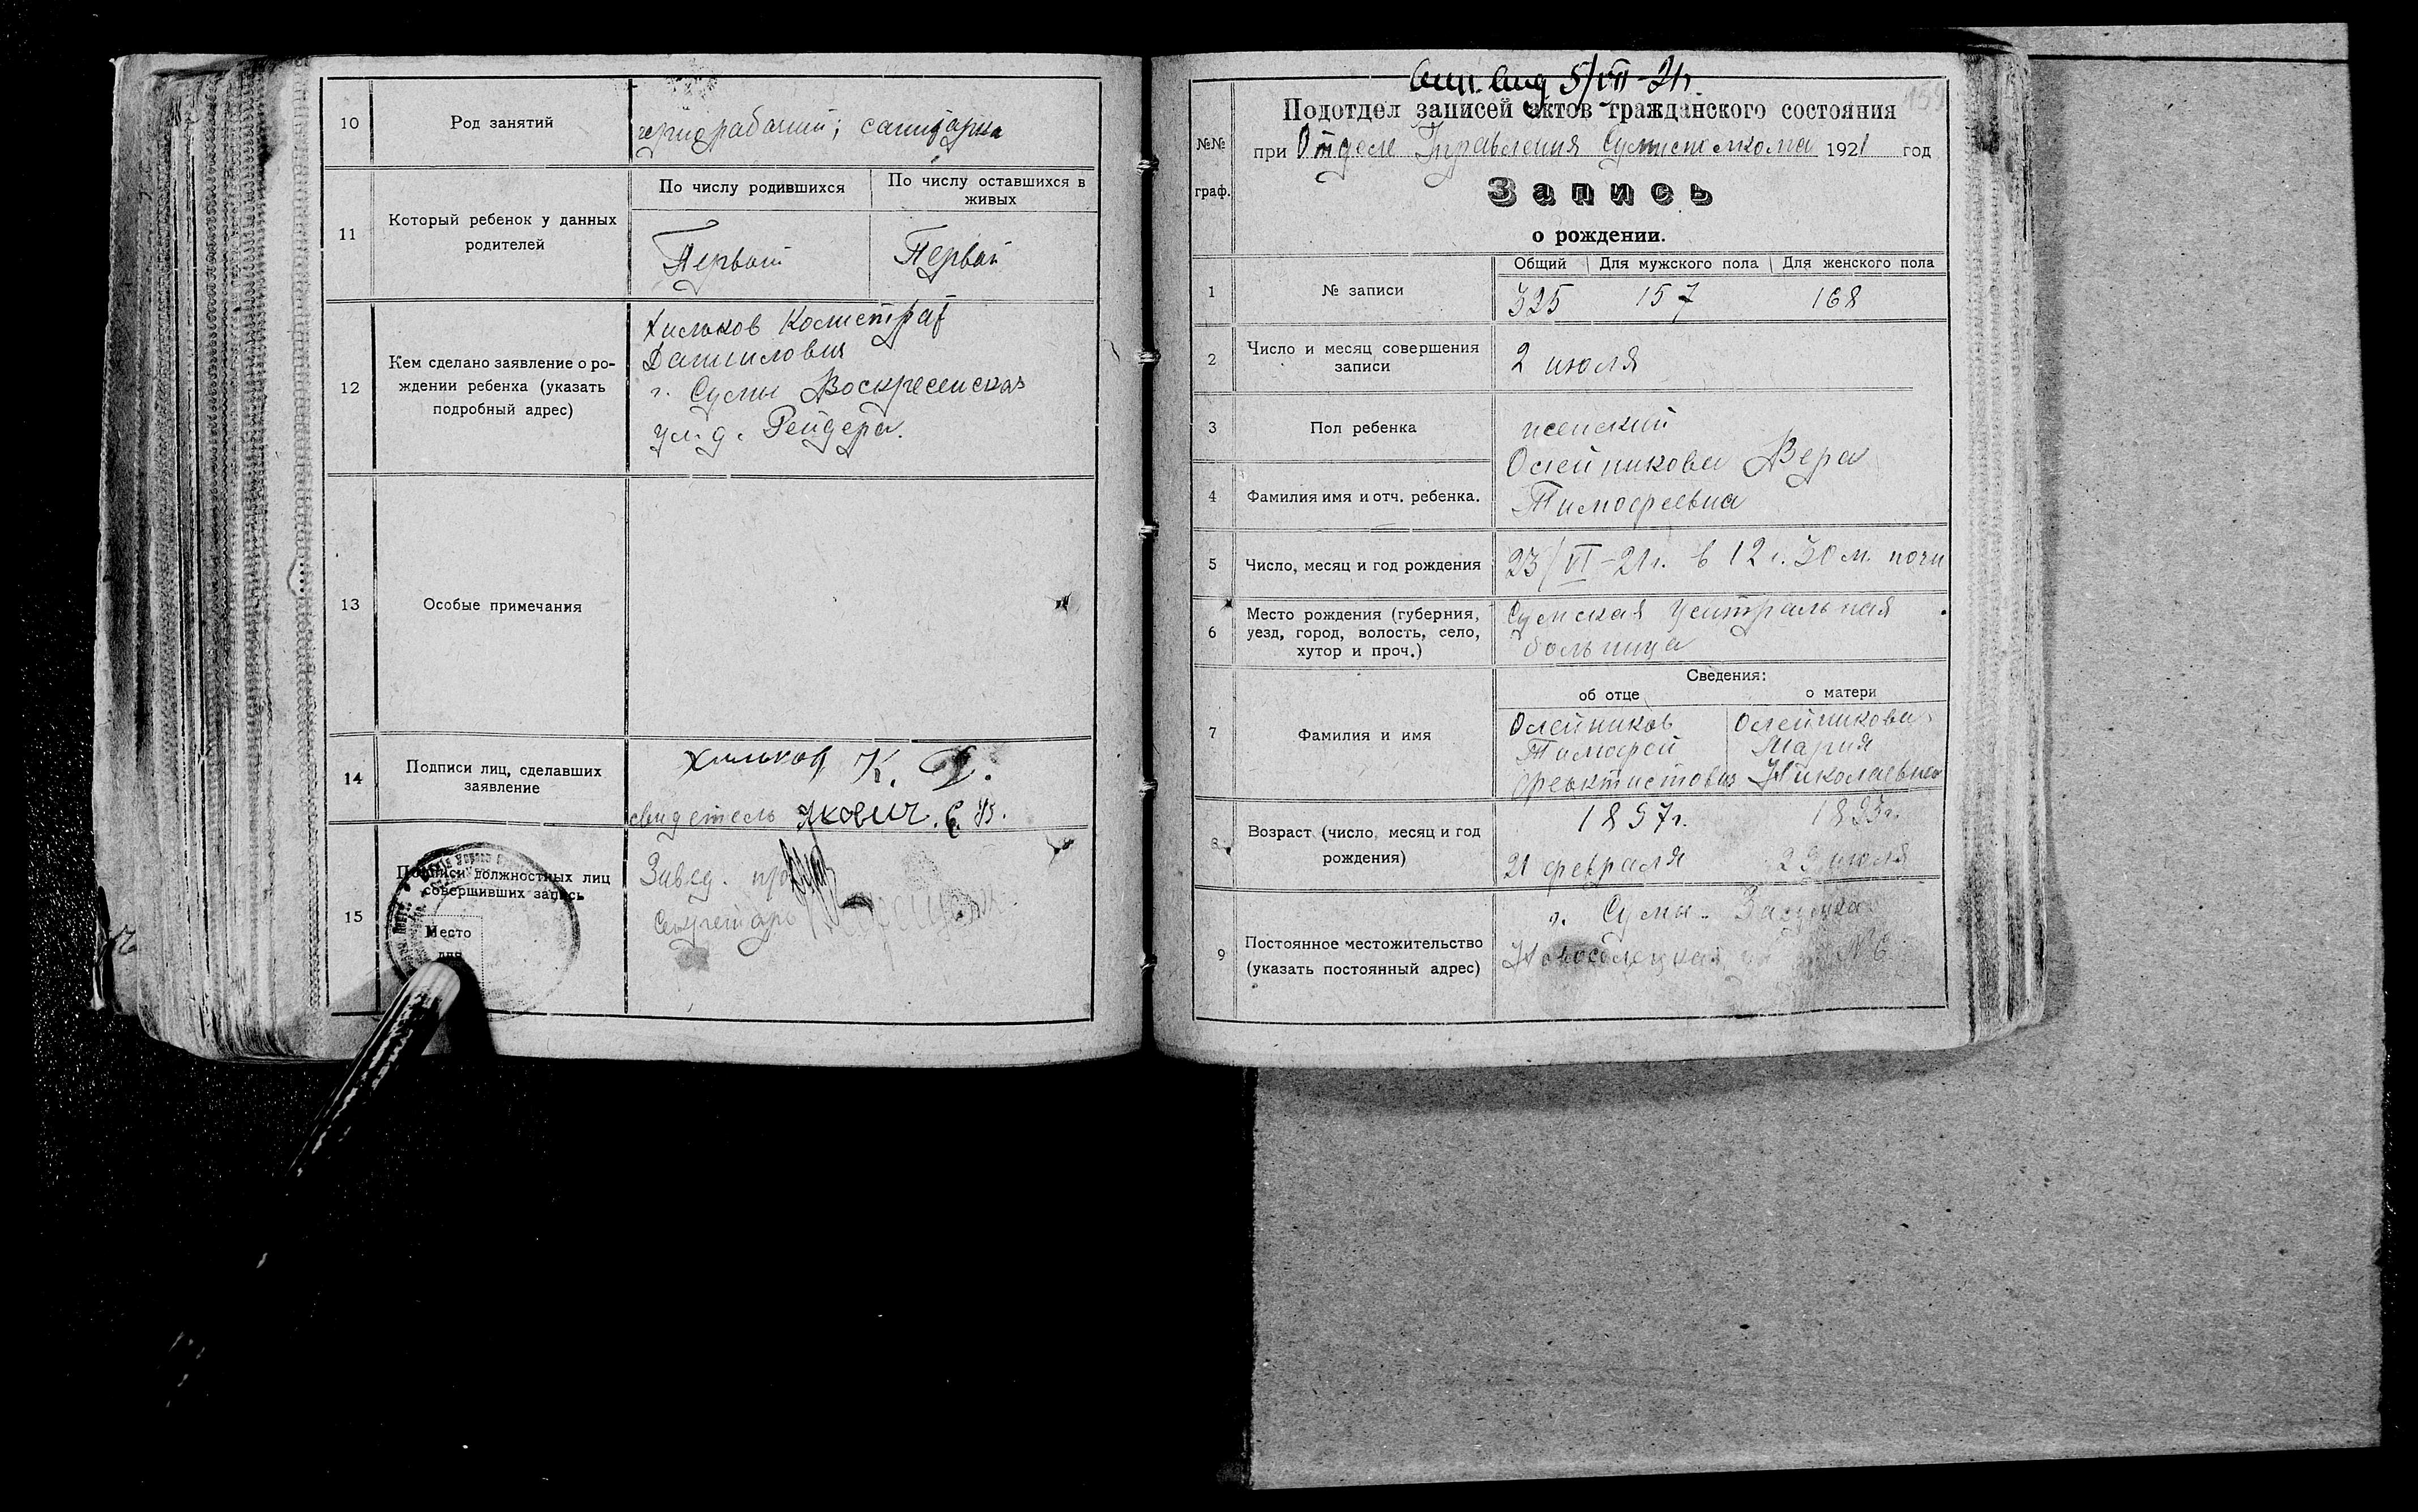 10 Род занятий чернорабочий; санитарка
11 Который ребенок у данных родителей
По числу родившихся По числу оставшихся в живых
Первый Первый
12 Кем сделано заявление о рождении ребенка (указать подробный адрес)
Хильков Калистрат
Данилович
г. Сумы Воскресенская
ул. д. Рейдера.
13 Особые примечания
14 Подписи лиц, сделавших заявление
Хильков К. Д.
свидетель
15 Подписи должностных лиц
совершивших запись
Место
для
Завед.
Секретарь
5/VII-21г.
Подотдел записей актов гражданского состояния
при Отделе Управления Сумисполкома 1921 год
№№
граф.
Запись
о рождении.
Общий Для мужского пола Для женского пола
1 № записи 325 157 168
2 Число и месяц совершения
записи
2 июля
3 Пол ребенка женский
4 Фамилия имя и отч. ребенка.
Олейникова Вера
Тимофеевна
5 Число, месяц и год рождения 23/VI-21г. в 12 ч. 30 м. ночи
6 Место рождения (губерния,
уезд, город, волость, село,
хутор и проч.)
Сумская центральная
больница
Сведения:
об отце о матери
7 Фамилия и имя
Олейников Олейникова
Тимофей Мария
Феоктистович Николаевна
8 Возраст (число, месяц и год
рождения)
1897г. 1893г.
21 февраля июля
9 Постоянное местожительство
(указать постоянный адрес)
г. Сумы
Новоселецкая № 6